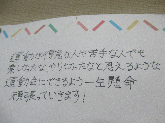 運動が得意な人が苦手な人でも
楽しかった、やりたかったなと思えるような
運動会にできるよう一生懸命
頑張っていきます!